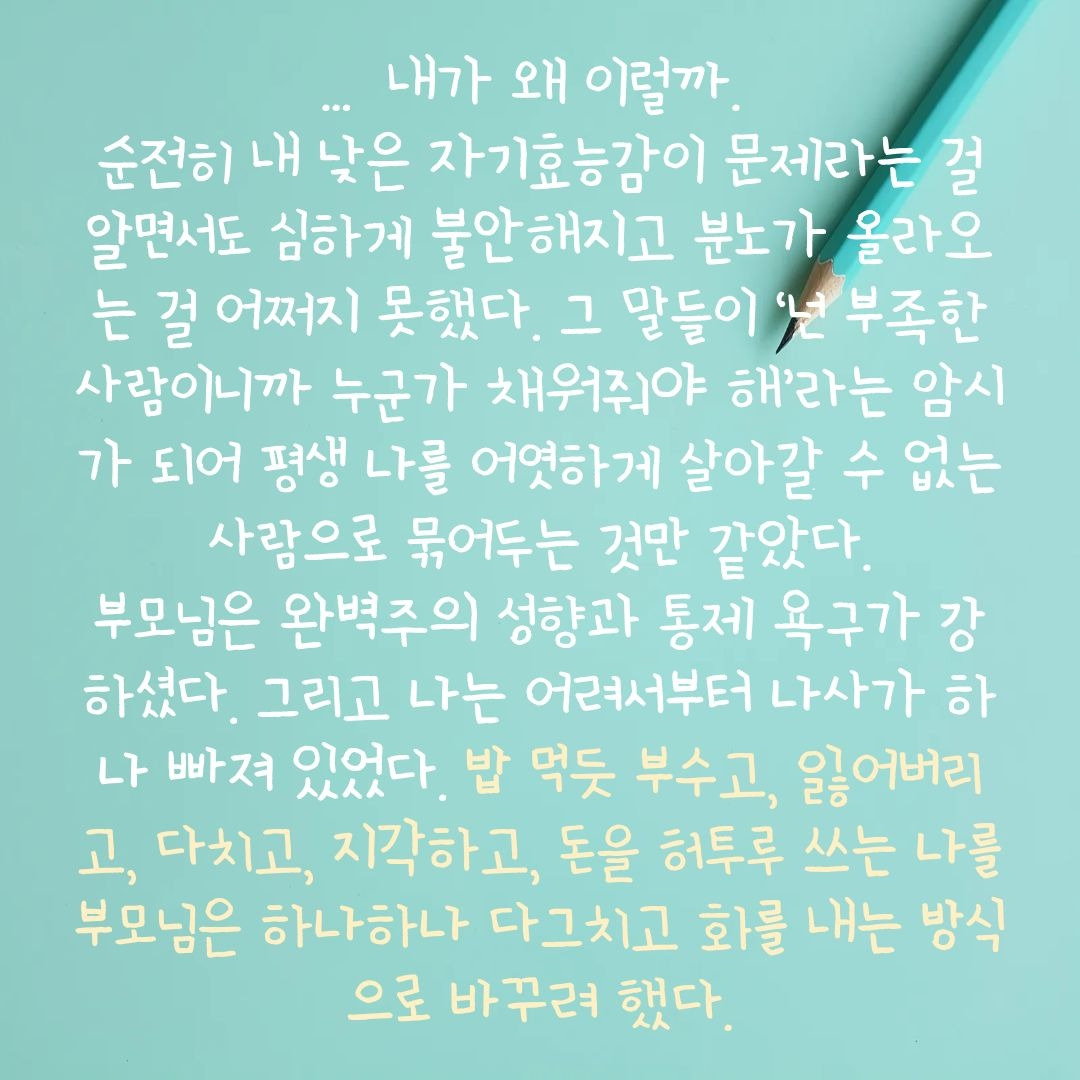 ... 내가 왜 이럴까.
순전히 내 낮은 자기효능감이 문제라는 걸
알면서도 심하게 불안해지고 분노가 올라오
는 걸 어쩌지 못했다. 그 말들이 ‘넌 부족한
사람이니까 누군가 채워줘야 해’라는 암시
가 되어 평생 나를 어엿하게 살아갈 수 없는
사람으로 묶어두는 것만 같았다.
부모님은 완벽주의 성향과 통제 욕구가 강
하셨다. 그리고 나는 어려서부터 나사가 하
나 빠져 있었다. 밥 먹듯 부수고, 잃어버리
고, 다치고, 지각하고, 돈을 허투루 쓰는 나를
부모님은 하나하나 다그치고 화를 내는 방식
으로 바꾸려 했다.